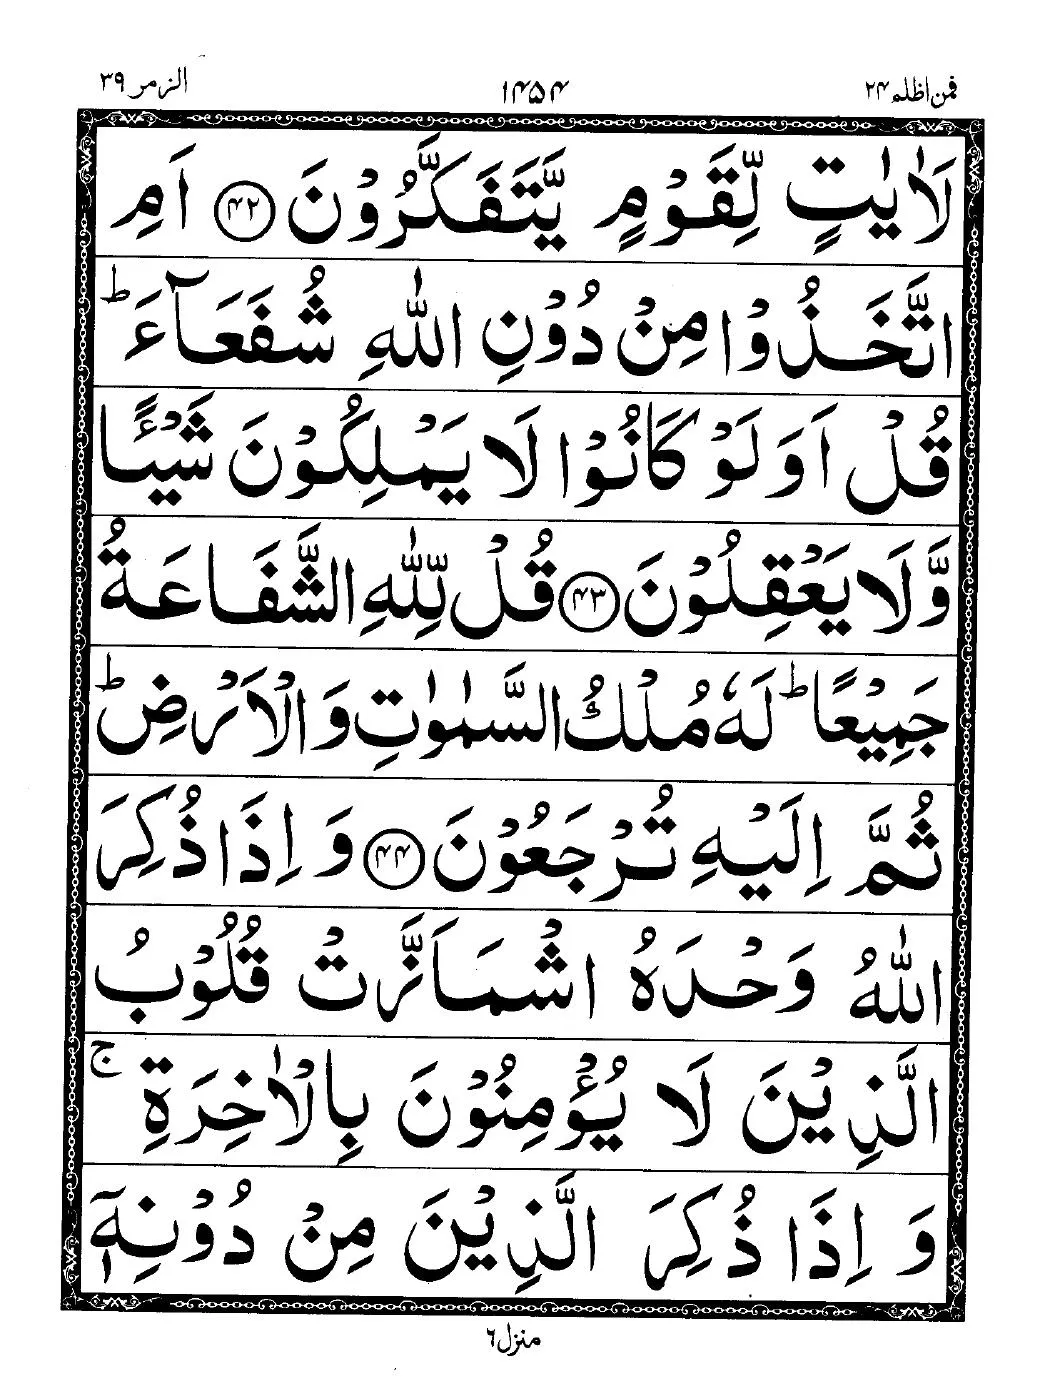 فمن اظلم ۲۴ ۱۴۵۴ الزمر ۳۹
لَاٰیٰتٍ لِّقَوْمٍ یَّتَفَكَّرُوْنَ ﴿۴۲﴾ اَمِ
اتَّخَذُوْا مِنْ دُوْنِ اللّٰهِ شُفَعَآءَ ؕ
قُلْ اَوَلَوْ كَانُوْا لَا یَمْلِكُوْنَ شَیْـًٔا
وَّلَا یَعْقِلُوْنَ ﴿۴۳﴾ قُلْ لِّلّٰهِ الشَّفَاعَةُ
جَمِیْعًا ؕ لَهٗ مُلْكُ السَّمٰوٰتِ وَالْاَرْضِ ؕ
ثُمَّ اِلَیْهِ تُرْجَعُوْنَ ﴿۴۴﴾ وَاِذَا ذُكِرَ
اللّٰهُ وَحْدَهُ اشْمَاَزَّتْ قُلُوْبُ
الَّذِیْنَ لَا یُؤْمِنُوْنَ بِالْاٰخِرَةِ ۚ
وَاِذَا ذُكِرَ الَّذِیْنَ مِنْ دُوْنِهٖۤ
منزل ۶